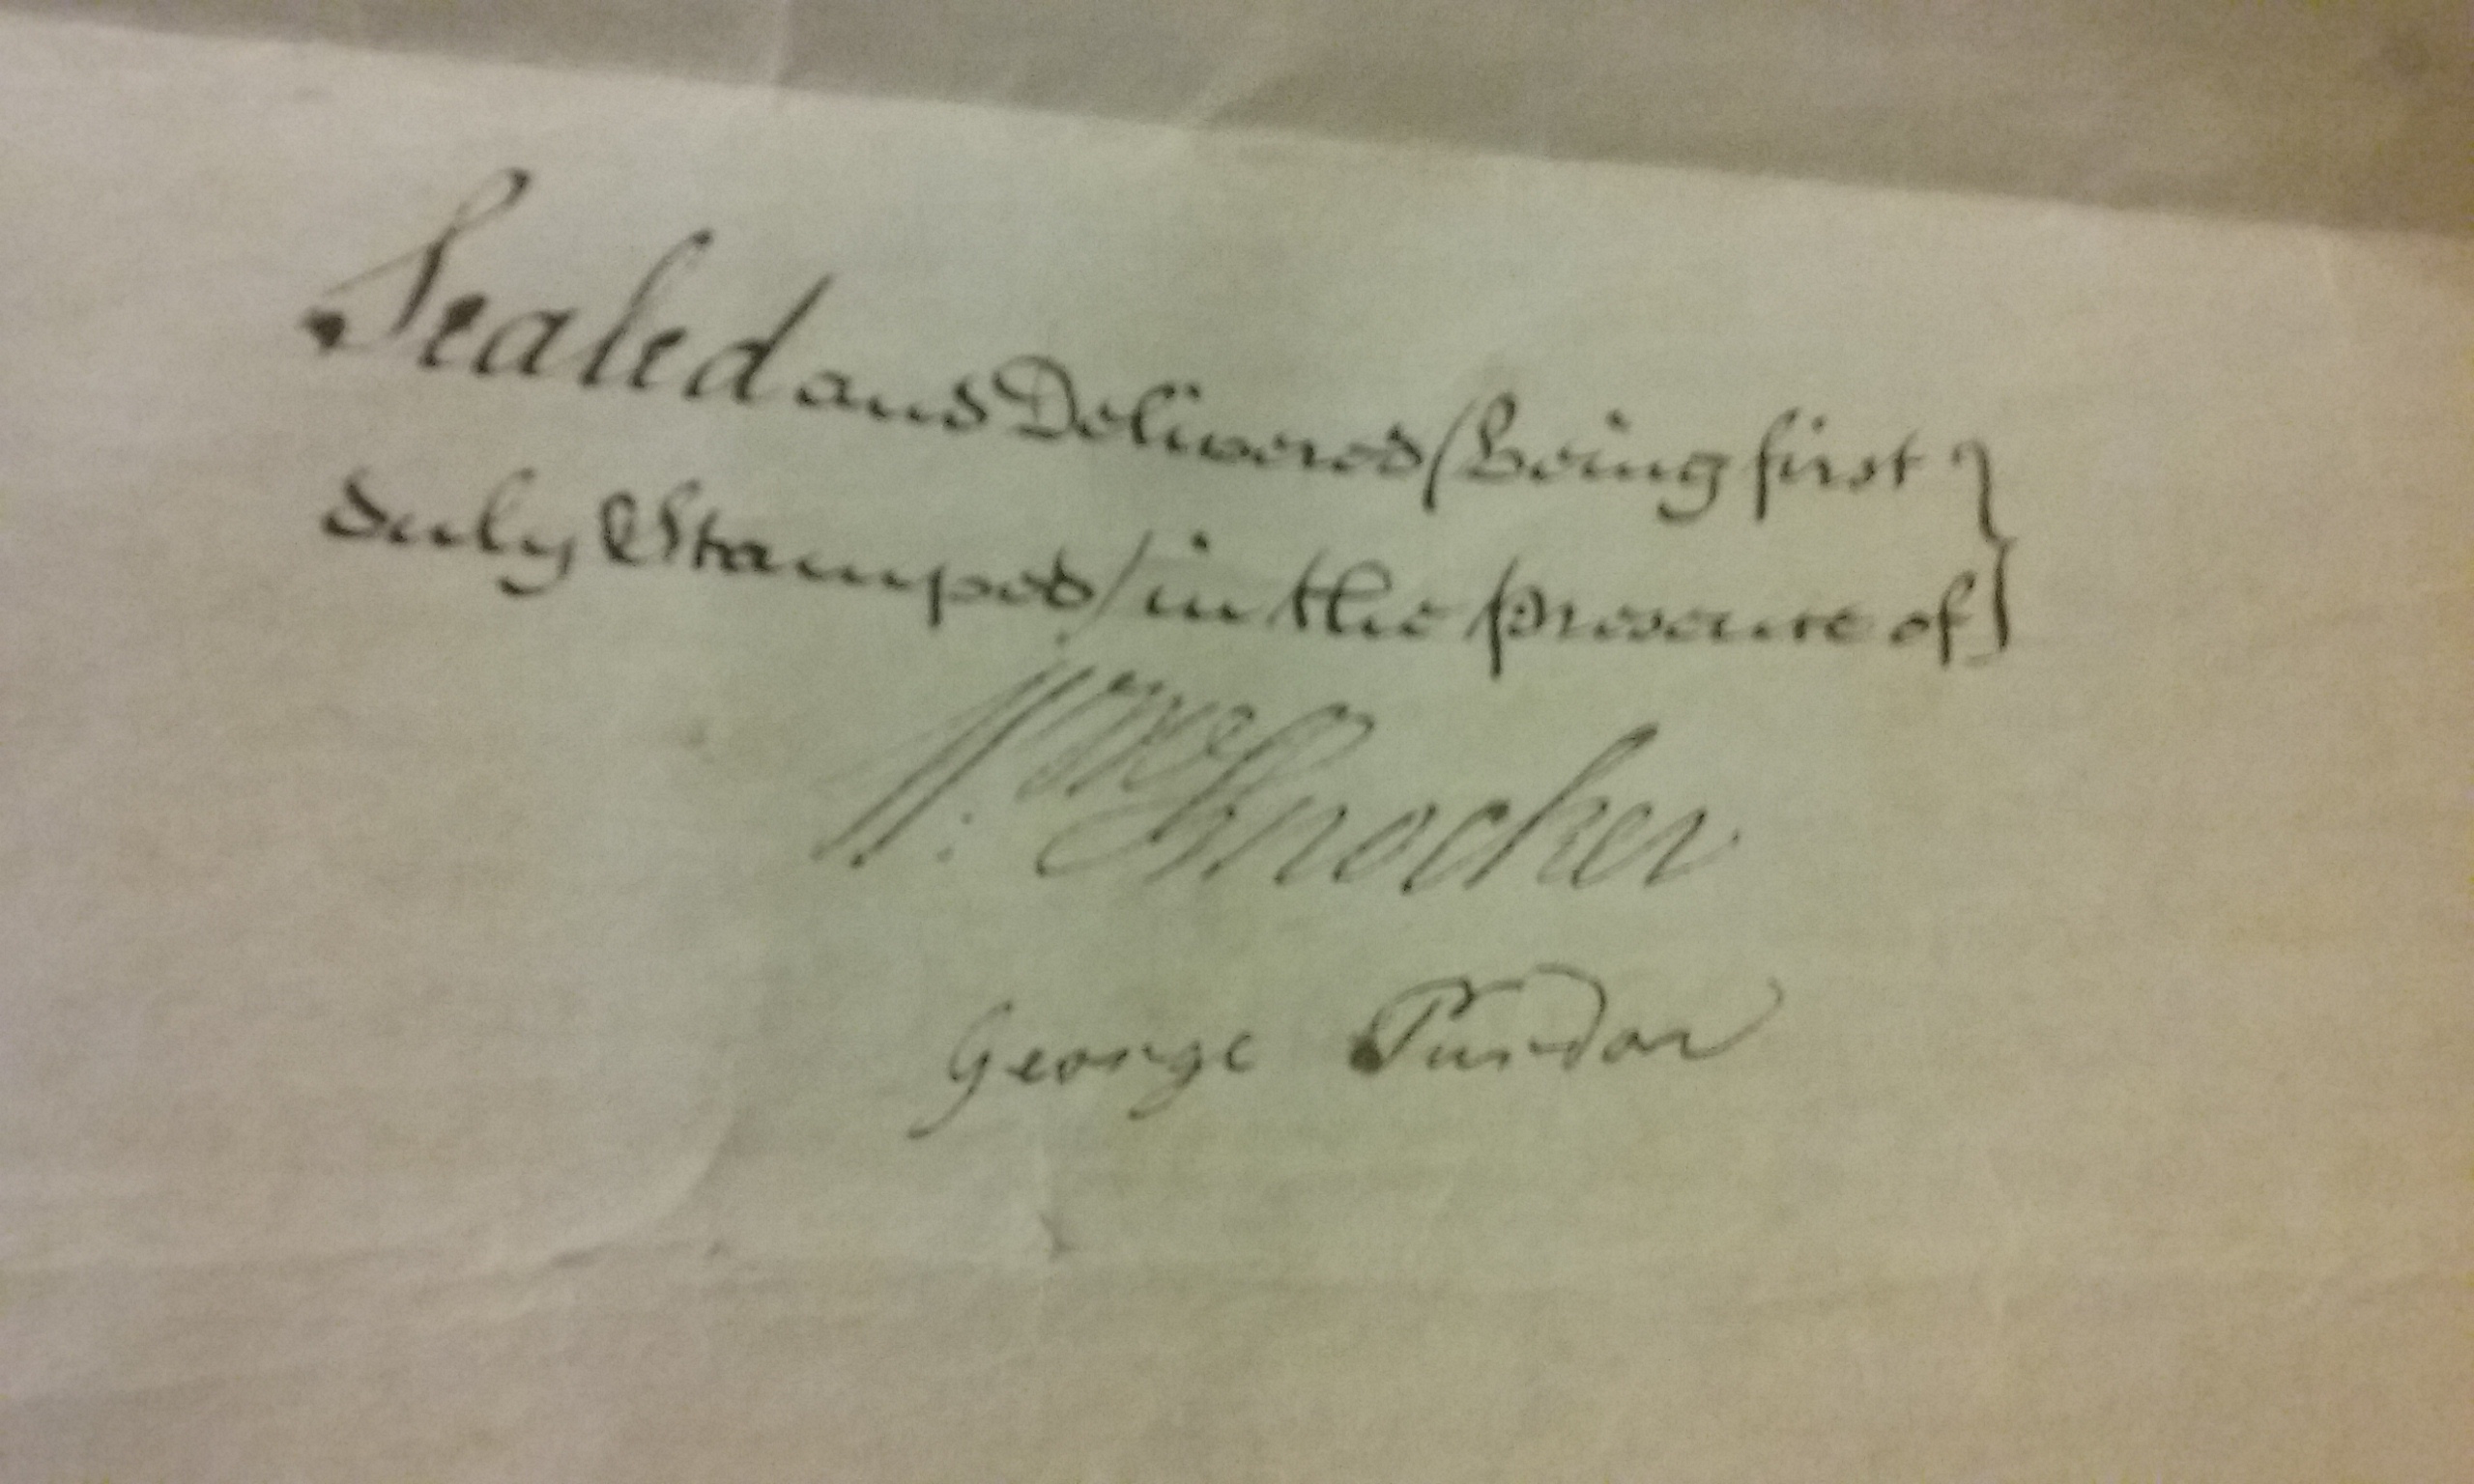 Sealed and Delivered (being first
duly Stamped) in the presence of
Wm Knocker
George Purdon